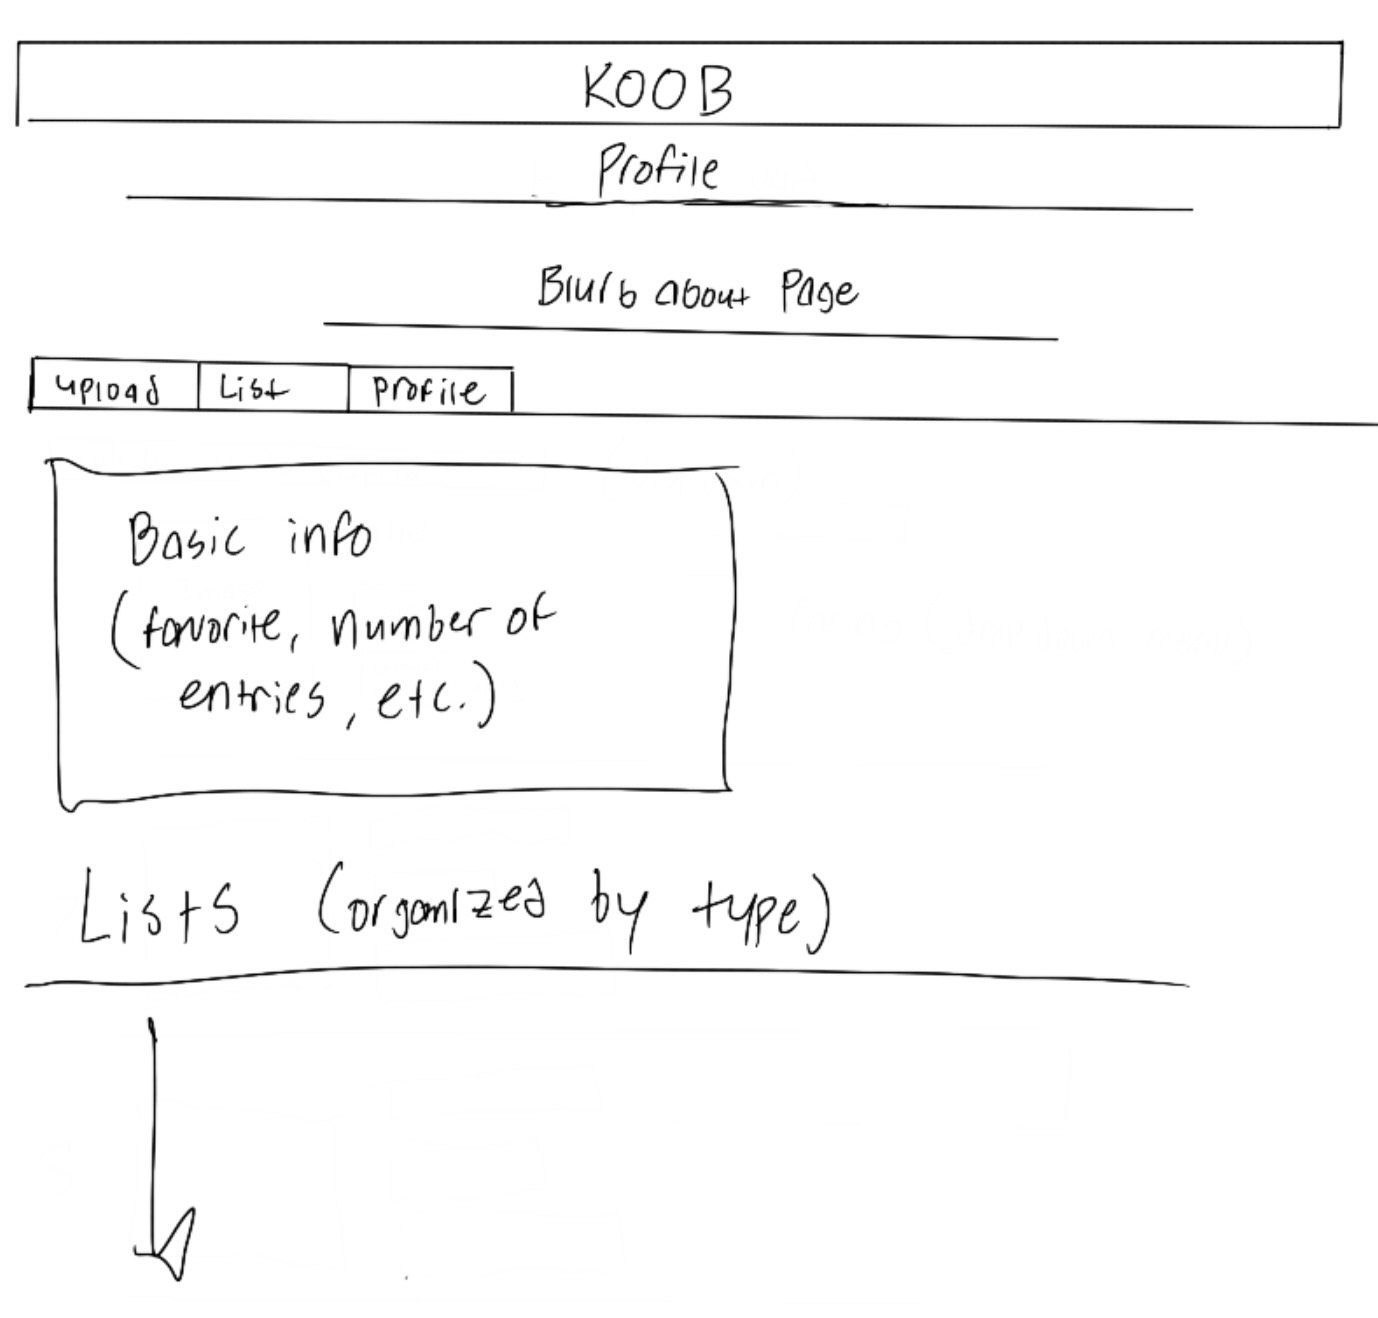 KOOB
Profile
Blurb about Page
upload List profile
Basic info
(favorite, number of
entries, etc.)
Lists (organized by type)